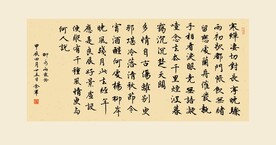 寒蟬凄切對長亭晚驟
雨初歇都門帳飲無緒
留戀處蘭舟催發執
手相看淚眼竟無語凝
噎念去去千里煙波暮
靄沉沉楚天闊
多情自古傷離別更
那堪冷落清秋節今
宵酒醒何處楊柳岸
曉風殘月此去經年
應是良辰好景虛設
便縱有千種風情更與
何人說
柳永雨霖鈴
甲辰四月廿五日